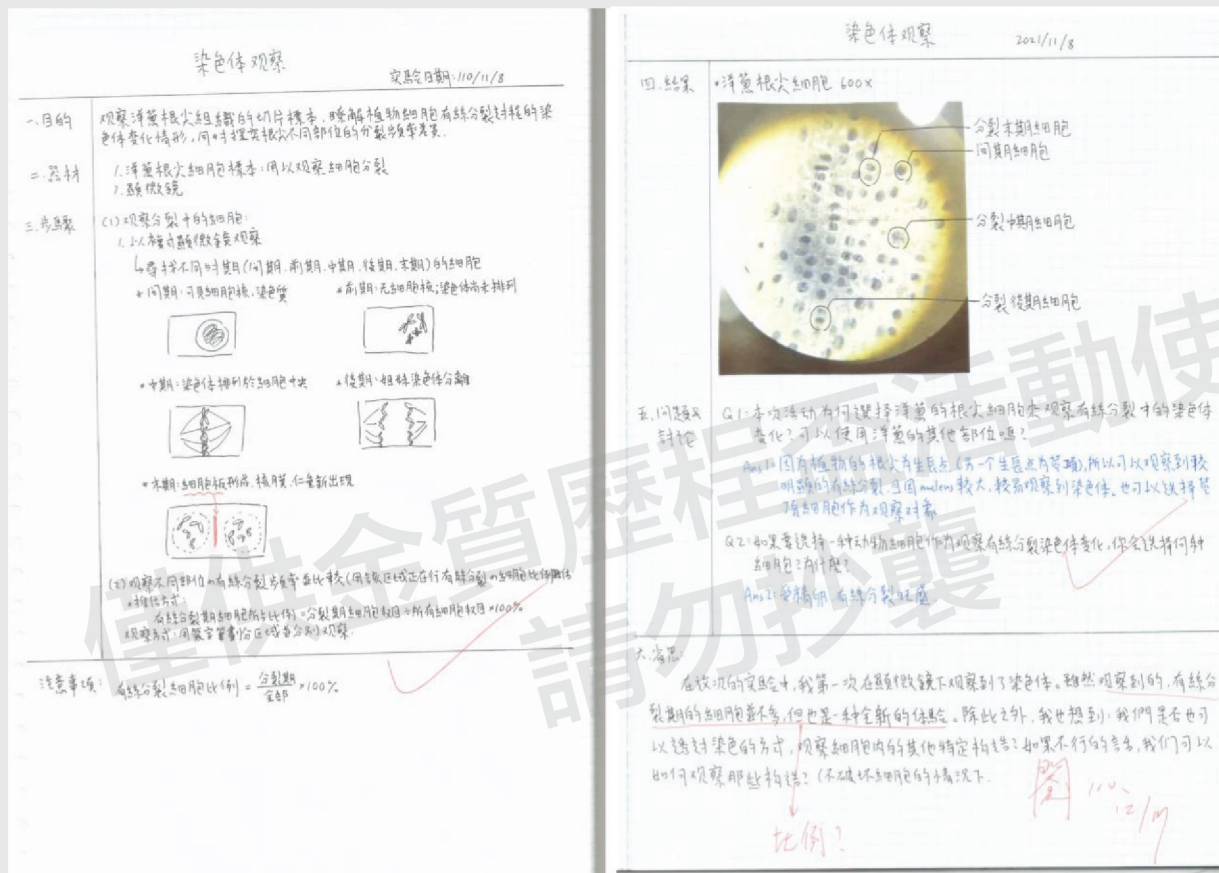 染色体观察
实驗日期:110/11/8
一.目的
观察洋蔥根尖組織的切片標本,瞭解植物細胞有絲分裂过程的染
色体变化情形,同时探究根尖不同部位的分裂頻率差異.
二.器材
1.洋蔥根尖細胞標本:用以观察細胞分裂
2.顕微鏡
三.步驟
(1)观察分裂中的細胞:
1.以複式顕微鏡观察
↳尋找不同时期(间期.前期.中期.後期.末期)的細胞
*间期:可見細胞核.染色質
*前期:无細胞核;染色体尚未排列
*中期:染色体排列於細胞中央
*後期:姐妹染色体分離
*末期:細胞板形成.核膜.仁重新出現
(2)观察不同部位的有絲分裂頻率並比較(用該区域正在行有絲分裂的細胞比例
*推估方式:
有絲分裂期細胞所占比例=分裂期細胞数目÷所有細胞数目×100%
观察方式:用 劃分区域並分別观察.
注意事項:
有絲分裂細胞比例 = 分裂期/全部 ×100%
染色体观察
2021/11/8
四.結果
*洋蔥根尖細胞 600x
分裂末期細胞
间期細胞
分裂中期細胞
分裂後期細胞
五.问題与
討论
Q1:本次活动为何選择洋蔥的根尖細胞來观察有絲分裂中的染色体
变化?可以使用洋蔥的其他部位嗎?
Ans1:因为植物的根尖为生長点(另一个生長点为莖頂),所以可以观察到較
明顕的有絲分裂.且因nucleus較大,較易观察到染色体.也可以选擇莖
頂細胞作为观察对象
Q2:如果要选擇一种动物細胞作为观察有絲分裂染色体变化,你会选擇何种
細胞?为什麼?
Ans2:受精卵.有絲分裂旺盛
六.省思
在这次的实驗中,我第一次在顕微鏡下观察到了染色体.雖然观察到的.有絲分
裂期的細胞並不多,但也是一种全新的体驗.除此之外,我也想到:我們是否也可
以透过染色的方式,观察細胞内的其他特定构造?如果不行的话,我们可以
如何观察那些构造?(不破坏細胞的情況下.
比例?
閱
110.
12/
僅供金質歷程王活動使
請勿抄襲